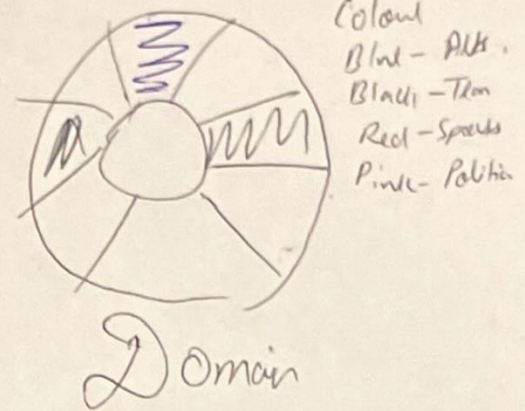 Colour
Blue - Arts.
Black - 
Red - Sports
Pink - Politics
Domain